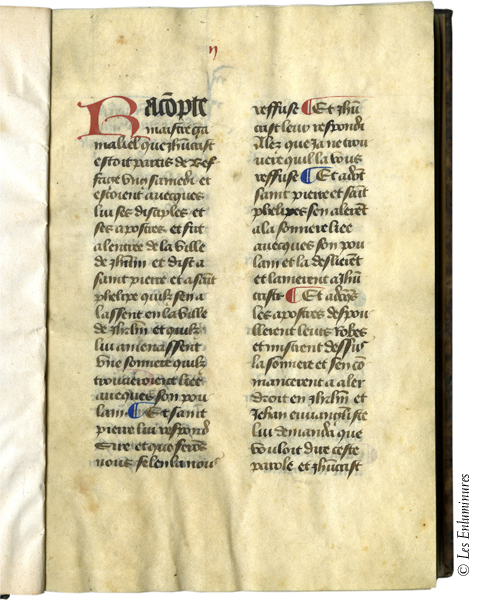 n
Racōpte
maistre ga
maliel que zhūcrist
estoit partis de Bef
faige vng samedi et
estoient auecques
lui ses disciples et
ses apostres et fut
a lentree de la ville
de zhrlm et dist a
saint pierre et a saīt
phelipe quilz sen a
lassent en la ville
de zhrlm et quilz
lui amenassent
vne sonniere quilz
trouueroient liee
auecques son pou
lain ¶ Et saint
pierre lui respond
Sire et que ferōs
nous se len la nous
reffuse ¶ Et zhū
crist leur respondi
Alez que ia ne trou
uere qui la vous
reffuse ¶ Et adōt
saint pierre et saīt
phelipes sen alerēt
a la sonniere liee
auecques son pou
lain et la deslierēt
et lamenent a zhū
crist ¶ Et
les apostres despou
llerent leurs robes
et mistrent dessus
la sonniere et sen cō
mancerent a aler
droit en zhrlm et
Jehan euuangliste
lui demanda que
vouloit dire ceste
parole et zhūcrist
© Les Enluminures